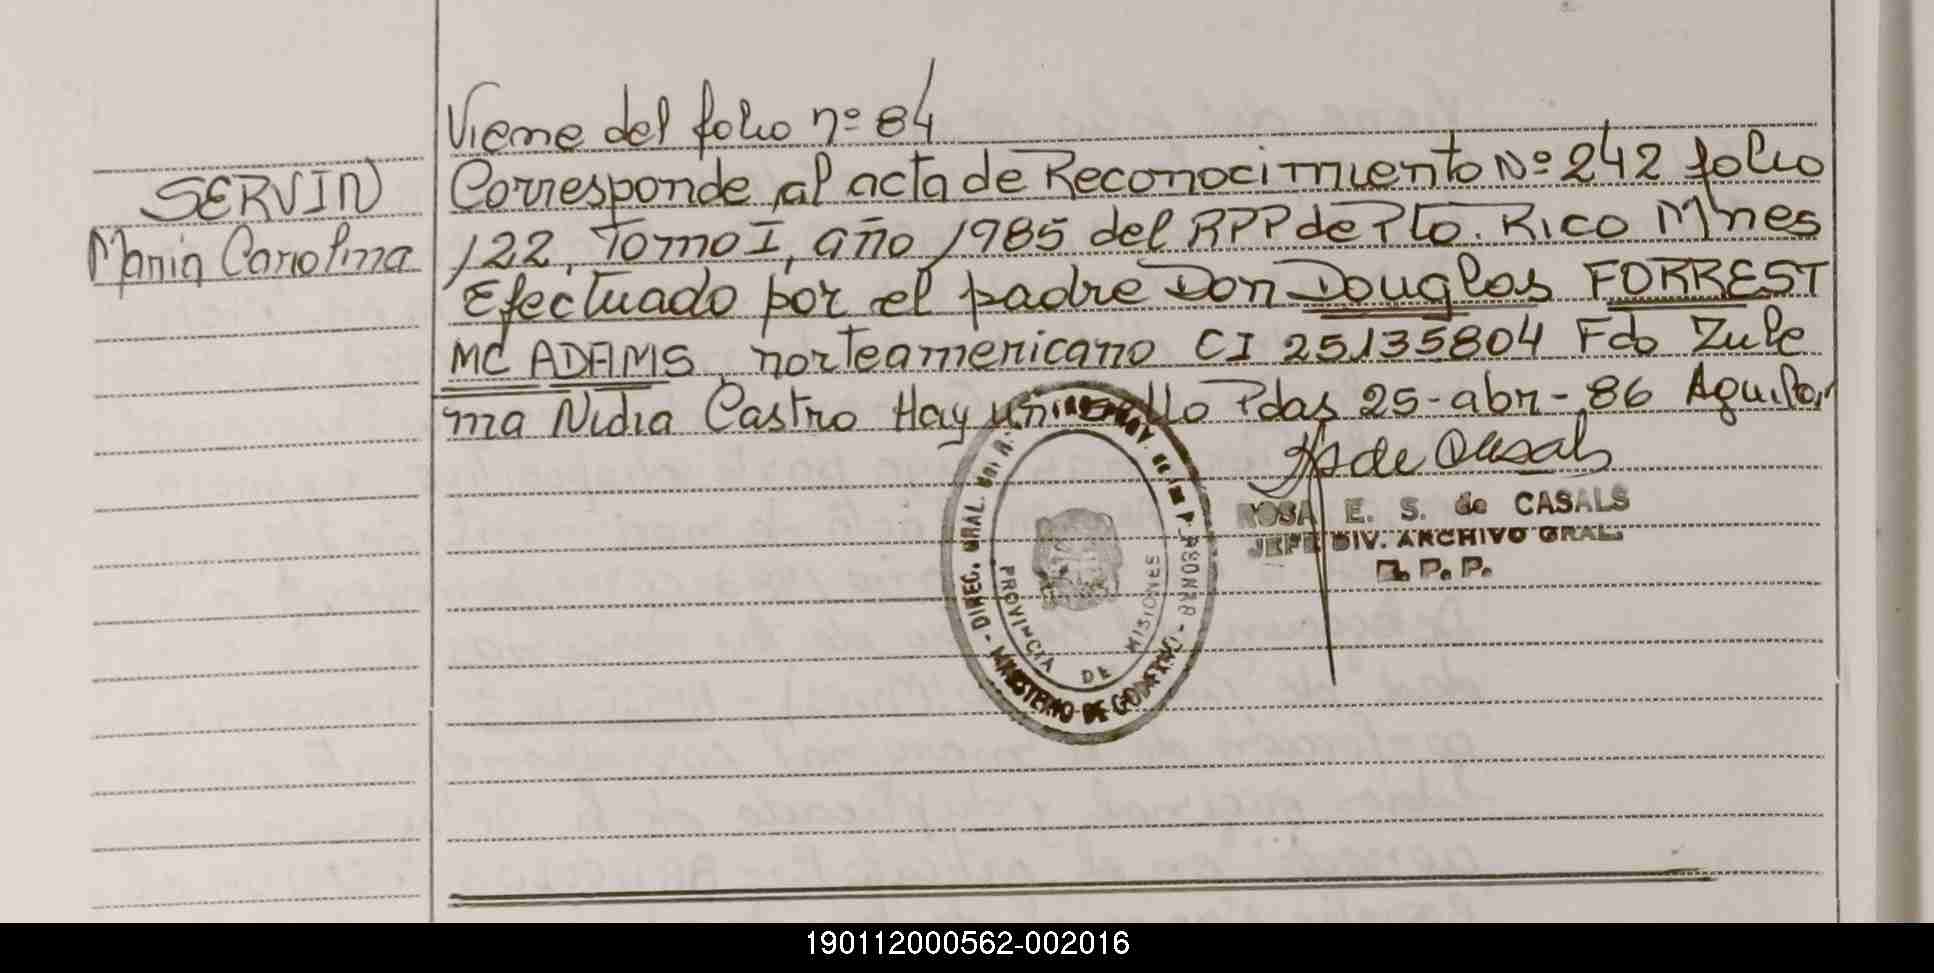 Viene del folio nº 84
SERVIN
Maria Carolina
Corresponde al acta de Reconocimiento Nº 242 folio
122, Tomo I, año 1985 del RPP de Pto. Rico Mnes
Efectuado por el padre Don Douglas FORREST
MC ADAMS, norteamericano CI 25135804 Fdo Zule
ma Nidia Castro Hay un sello Pdas 25-abr-86 Aguilar
de Casals
ROSA E. S. de CASALS
JEFE DIV. ARCHIVO GRAL.
R. P. P.
DIREC. GRAL. DEL R. PROV. DE LAS PERSONAS
MINISTERIO DE GOBIERNO
PROVINCIA DE MISIONES
190112000562-002016